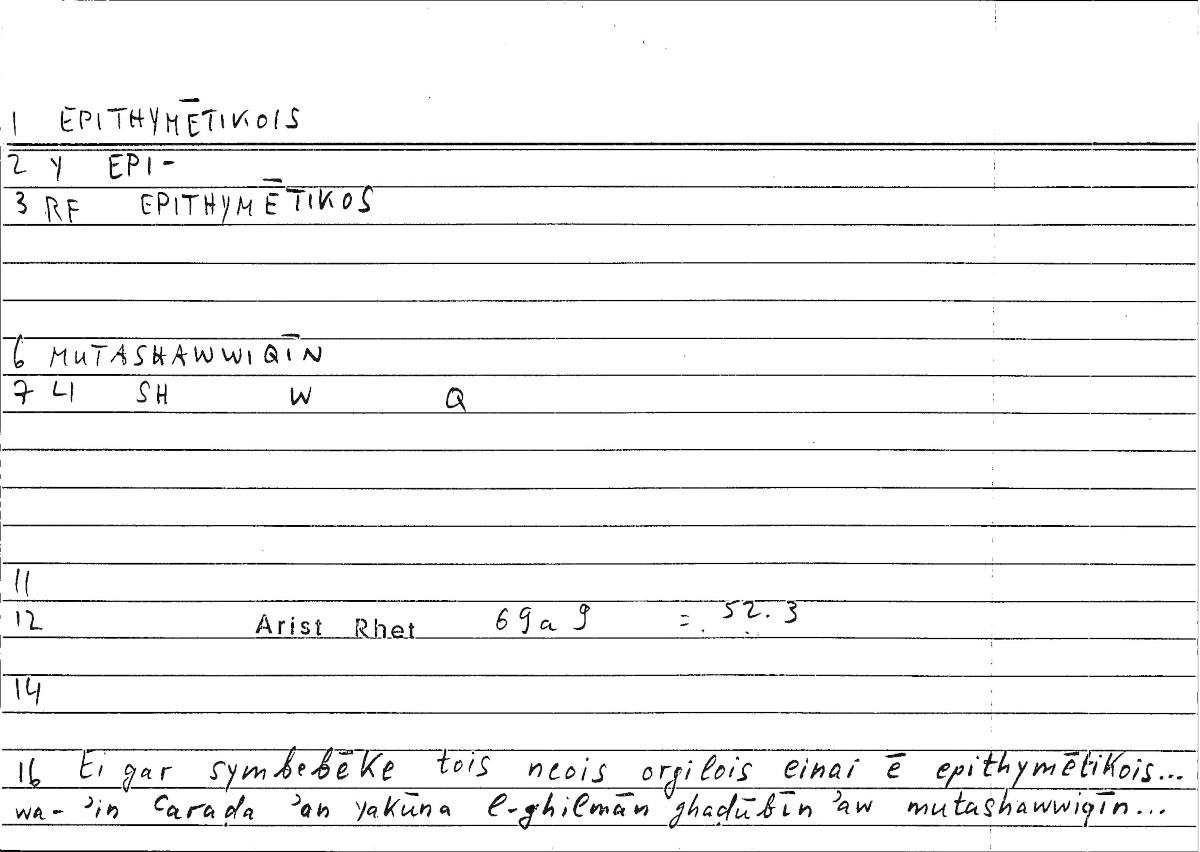 1 EPITHYMĒTIKOIS
2 Y EPI-
3 RF EPITHYMĒTIKOS
6 MUTASHAWWIQĪN
7 LI SH W Q
11
12 Arist Rhet 69a9 = 52.3
14
16 Ei gar symbebēke tois neois orgilois einai ē epithymētikois...
wa- ʾin ʿaraḍa ʾan yakūna l-ghilmān ghaḍūbīn ʾaw mutashawwiqīn...